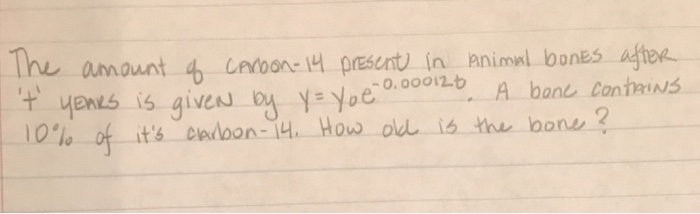 The amount of carbon-14 present in animal bones after
't' years is given by y=y₀e^-0.00012t. A bone contains
10% of it's carbon-14. How old is the bone?